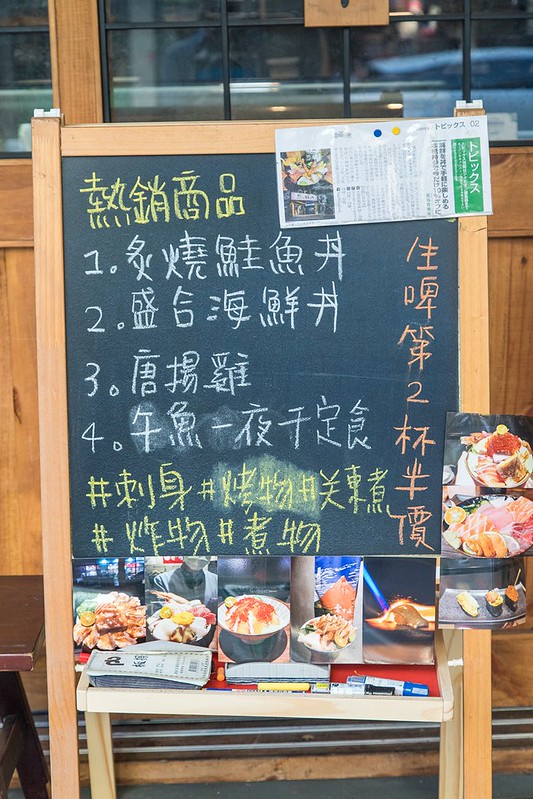 熱銷商品
1。炙燒鮭魚丼
2。盛合海鮮丼
3。唐揚雞
4。午魚一夜干定食
#刺身#烤物#关東煮
#炸物#煮物
生啤第2杯半價
トピックス 02
トピックス